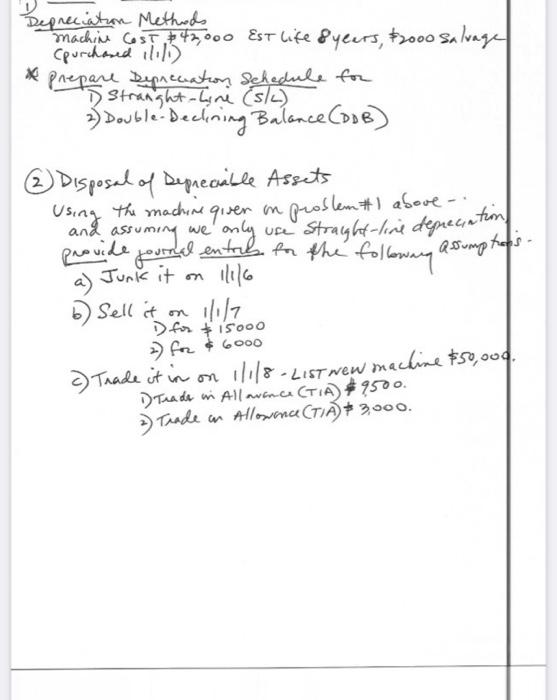 1)
Depreciation Methods
Machine Cost $42,000 EST Life 8 years, $2000 Salvage
(purchased 1/1/1)
* prepare Depreciation Schedule for
1) Straight-Line (S/L)
2) Double-Declining Balance (DDB)
2) Disposal of Depreciable Assets
Using the machine given in problem #1 above -
and assuming we only use Straight-line depreciation,
provide journal entries for the following assumptions -
a) Junk it on 1/1/6
b) Sell it on 1/1/7
1) for $15000
2) for $6000
c) Trade it in on 1/1/8 - LIST new machine $50,000.
1) Trade in Allowance (TIA) $9,500.
2) Trade in Allowance (TIA) $3,000.